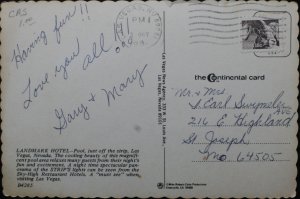 CRS
1.00
Having fun!!
Love you all!
Gary & Mary
LANDMARK HOTEL—Pool, just off the strip, Las
Vegas, Nevada. The cooling beauty of this magnifi-
cent pool area relaxes many guests from their night's
fun and excitement. A night time spectacular pan-
orama of the STRIP'S lights can be seen from the
Sky-High Restaurant Hotels. A "must see" when
visiting Las Vegas.
D4285
Las Vegas News Agency
the Continental card
Mr. & Mrs
J. Carl Swymeler
216 E Highland
St. Joseph
Mo 64505